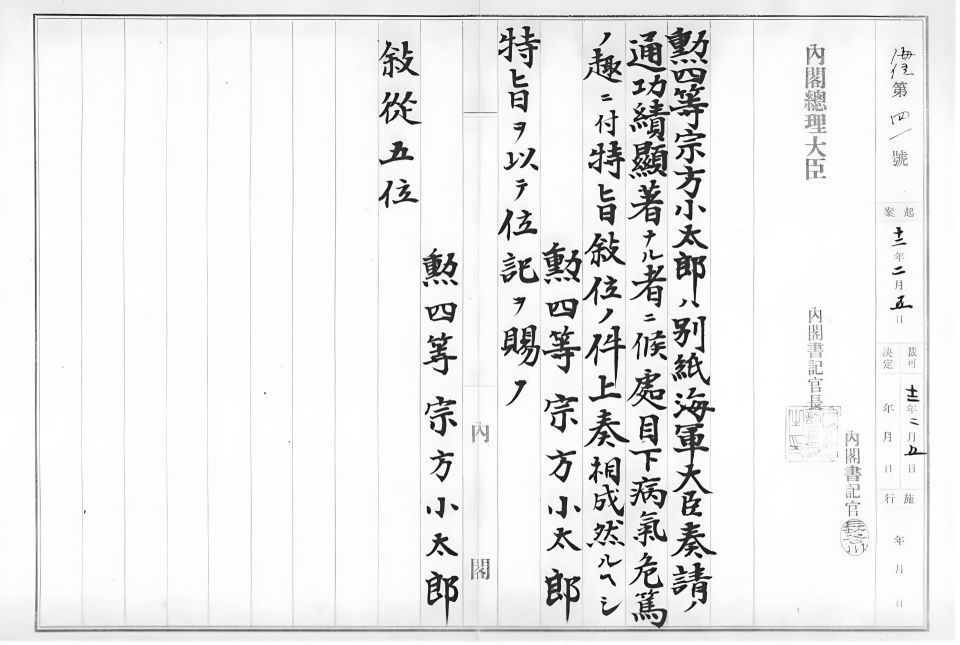 海任第四一號
起案 十二年二月五日
裁可決定 十二年二月五日 年月日
施行 年月日
內閣總理大臣
內閣書記官長
內閣書記官
勲四等宗方小太郎ハ別紙海軍大臣奏請ノ
通功績顯著ナル者ニ候處目下病氣危篤
ノ趣ニ付特旨敍位ノ件上奏相成然ルヘシ
勲四等宗方小太郎
特旨ヲ以テ位記ヲ賜フ
內閣
勲四等宗方小太郎
敍從五位